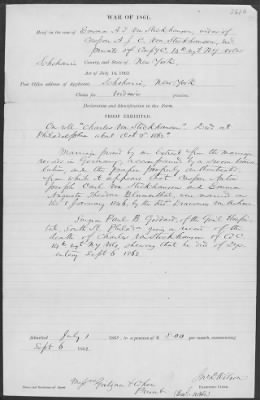 WAR OF 1861.
Brief in the case of Emma A. T. Von Stockhausen, widow of
Caspar A. J. C. Von Stockhausen, dec'd
private of Comp'y C. 14th regt N.Y. Vols
Schoharie County, and State of New York.
Act of July 14, 1862.
Post Office address of Applicant: Schoharie, New York
Claim for widow's pension.
Declaration and Identification in due Form.
PROOF EXHIBITED.
On roll "Charles Von Stockhausen". Died at
Philadelphia about
Marriage proved by an extract from the marriage
records in Germany, accompanied by a sworn trans-
lation, and the papers properly authenticated
from which it appears that Caspar Anton
Joseph Carl Von Stockhausen and Emma
Augusta Theodora Blumenthal, were married on
the 1 February 1846, by the
Surgeon Paul B. Goddard, of the Gen'l Hospi-
tal, South St. Phila, giving a record of the
death of Charles Von Stockhausen of Co. C.
14th regt N.Y. Vols, shewing that he died of Dys-
entery Sept 6 1862.
Admitted July 1 1863, to a pension of $8.00 per month, commencing
Sept 6 1862.
Name and Residence of Agent.
Examining Clerk.